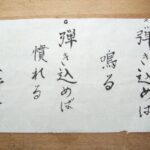 弾き込めば
鳴る
。弾き込めば
慣れる